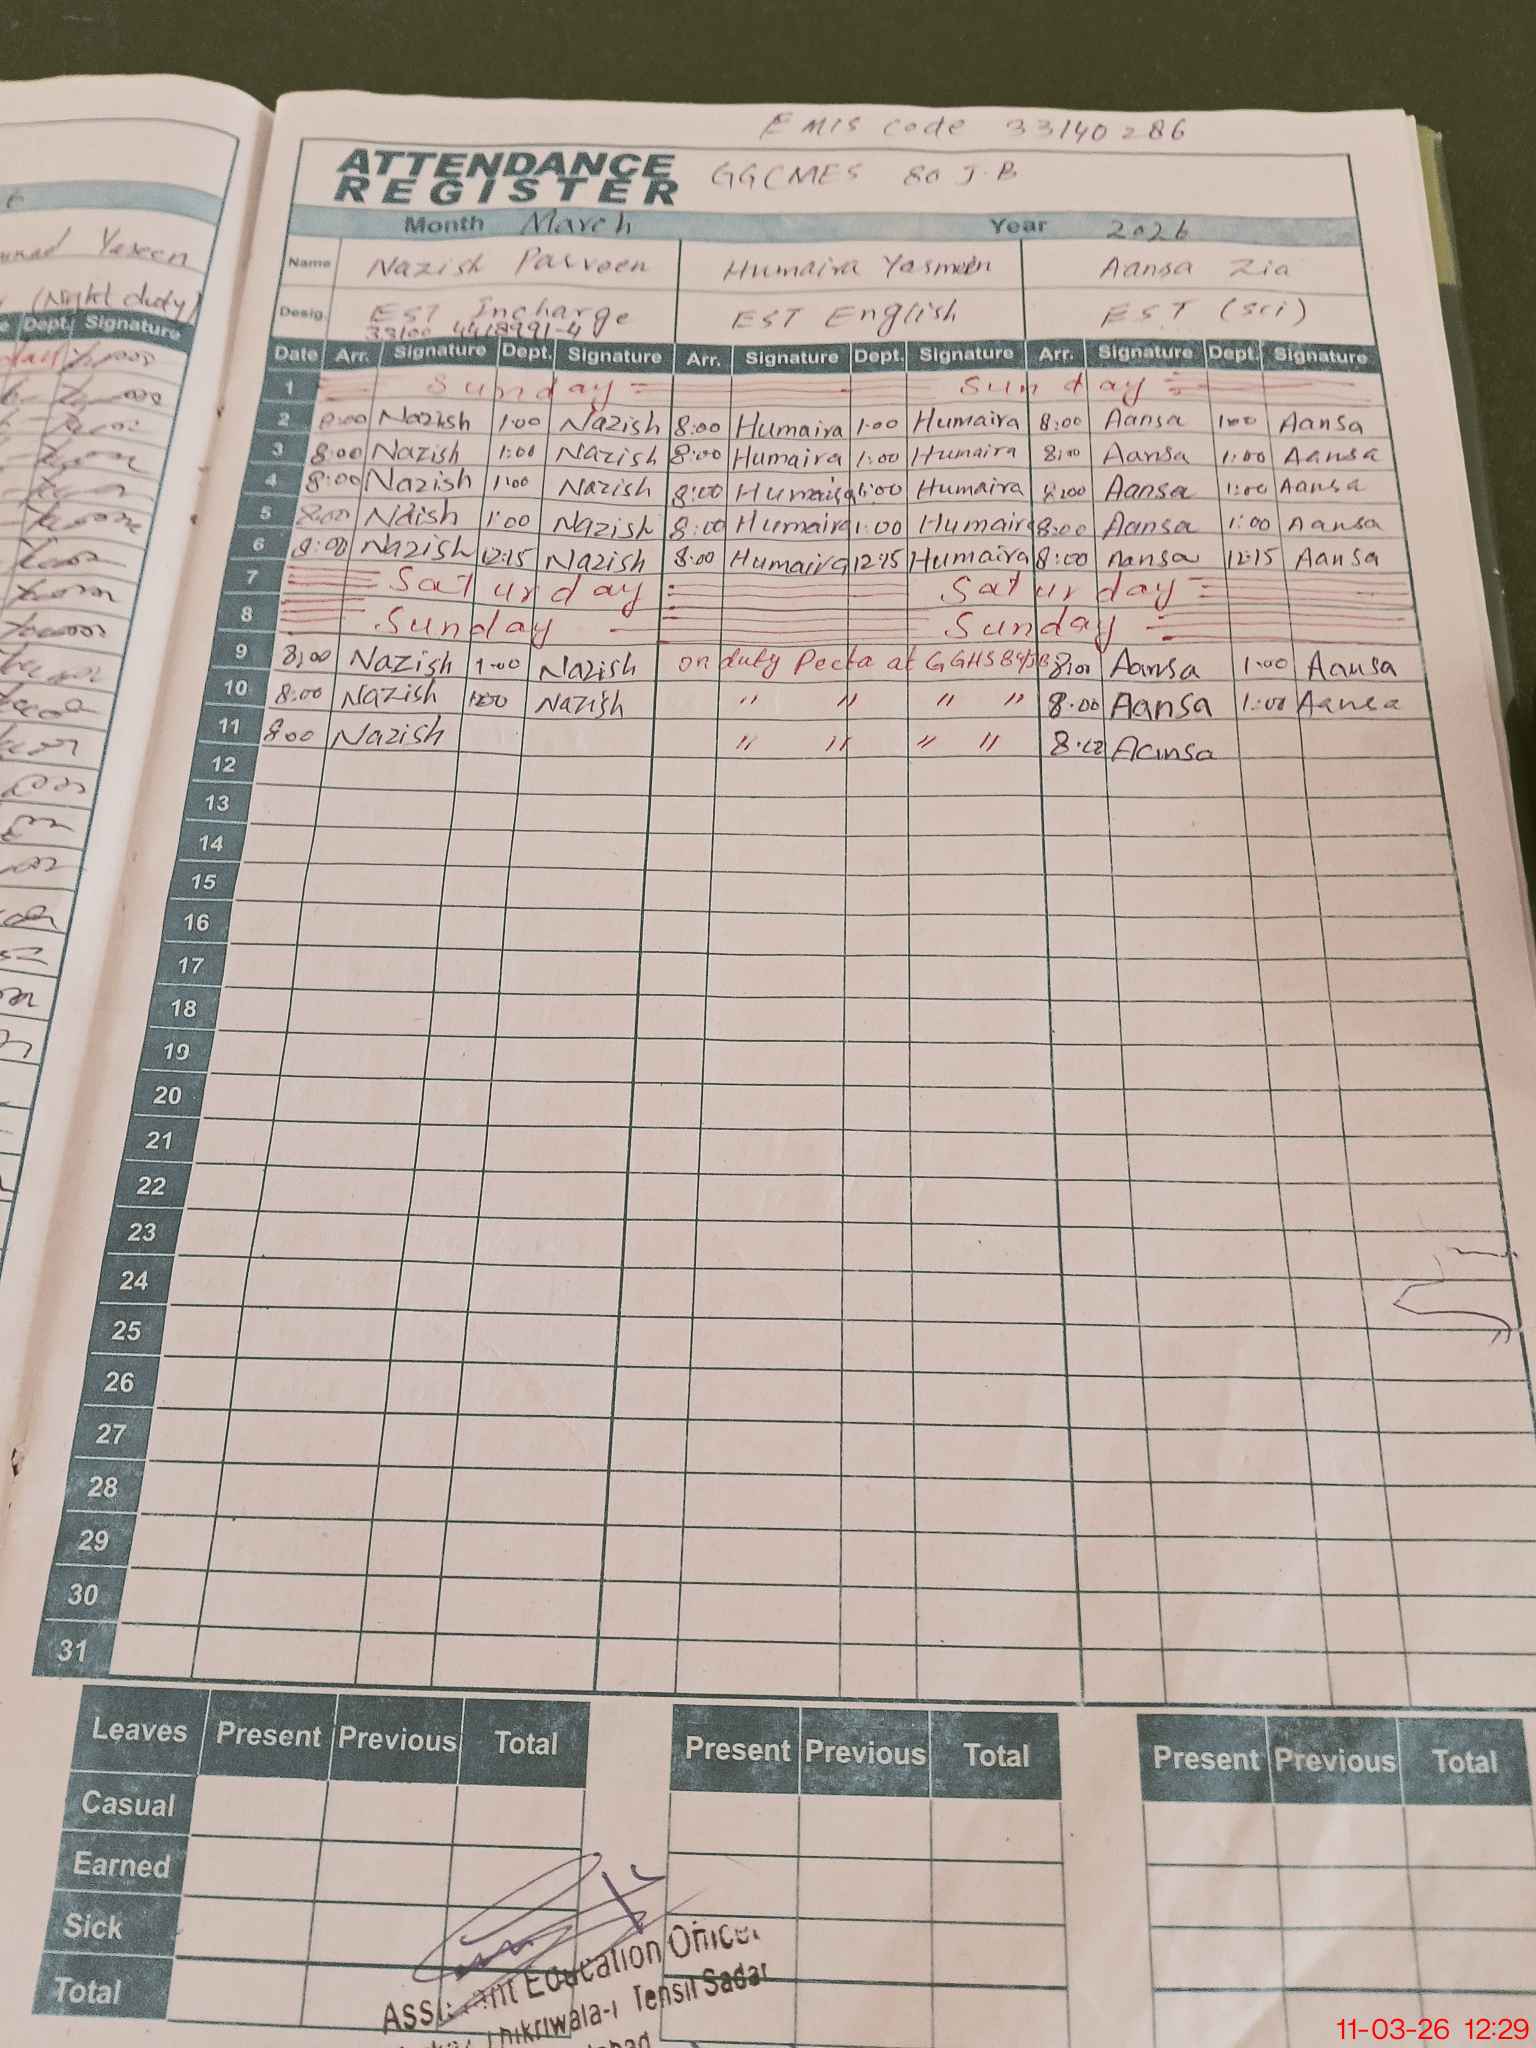 EMIS code 33140286
ATTENDANCE REGISTER GGCMES 80 J.B
Month March Year 2026
Name Nazish Parveen Humaira Yasmeen Aansa Zia
Desig. EST Incharge EST English EST (Sci)
33100-4418991-4
Date Arr. Signature Dept. Signature Arr. Signature Dept. Signature Arr. Signature Dept. Signature
1 Sunday Sunday
2 8:00 Nazish 1:00 Nazish 8:00 Humaira 1:00 Humaira 8:00 Aansa 1:00 Aansa
3 8:00 Nazish 1:00 Nazish 8:00 Humaira 1:00 Humaira 8:00 Aansa 1:00 Aansa
4 8:00 Nazish 1:00 Nazish 8:00 Humaira 1:00 Humaira 8:00 Aansa 1:00 Aansa
5 8:00 Naish 1:00 Nazish 8:00 Humaira 1:00 Humaira 8:00 Aansa 1:00 Aansa
6 8:00 Nazish 12:15 Nazish 8:00 Humaira 12:15 Humaira 8:00 Aansa 12:15 Aansa
7 Saturday Saturday
8 Sunday Sunday
9 8:00 Nazish 1:00 Nazish on duty Pecta at GGHS 8:00 Aansa 1:00 Aansa
10 8:00 Nazish Nazish " " " " 8:00 Aansa 1:00 Aansa
11 8:00 Nazish " " " " Aansa
12
13
14
15
16
17
18
19
20
21
22
23
24
25
26
27
28
29
30
31
Leaves Present Previous Total Present Previous Total Present Previous Total
Casual
Earned
Sick
Total
Assistant Education Officer
Tehsil Sadar
Yaseen
(Night duty)
Dept. Signature
11-03-26 12:29